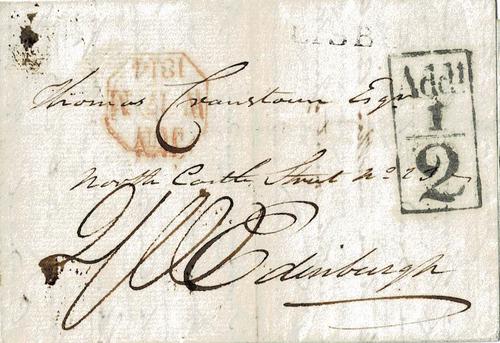 LISB
Addl
1
2
1814
Thomas Cranstoun Esqr
North Castle Street No
2/
Edinburgh